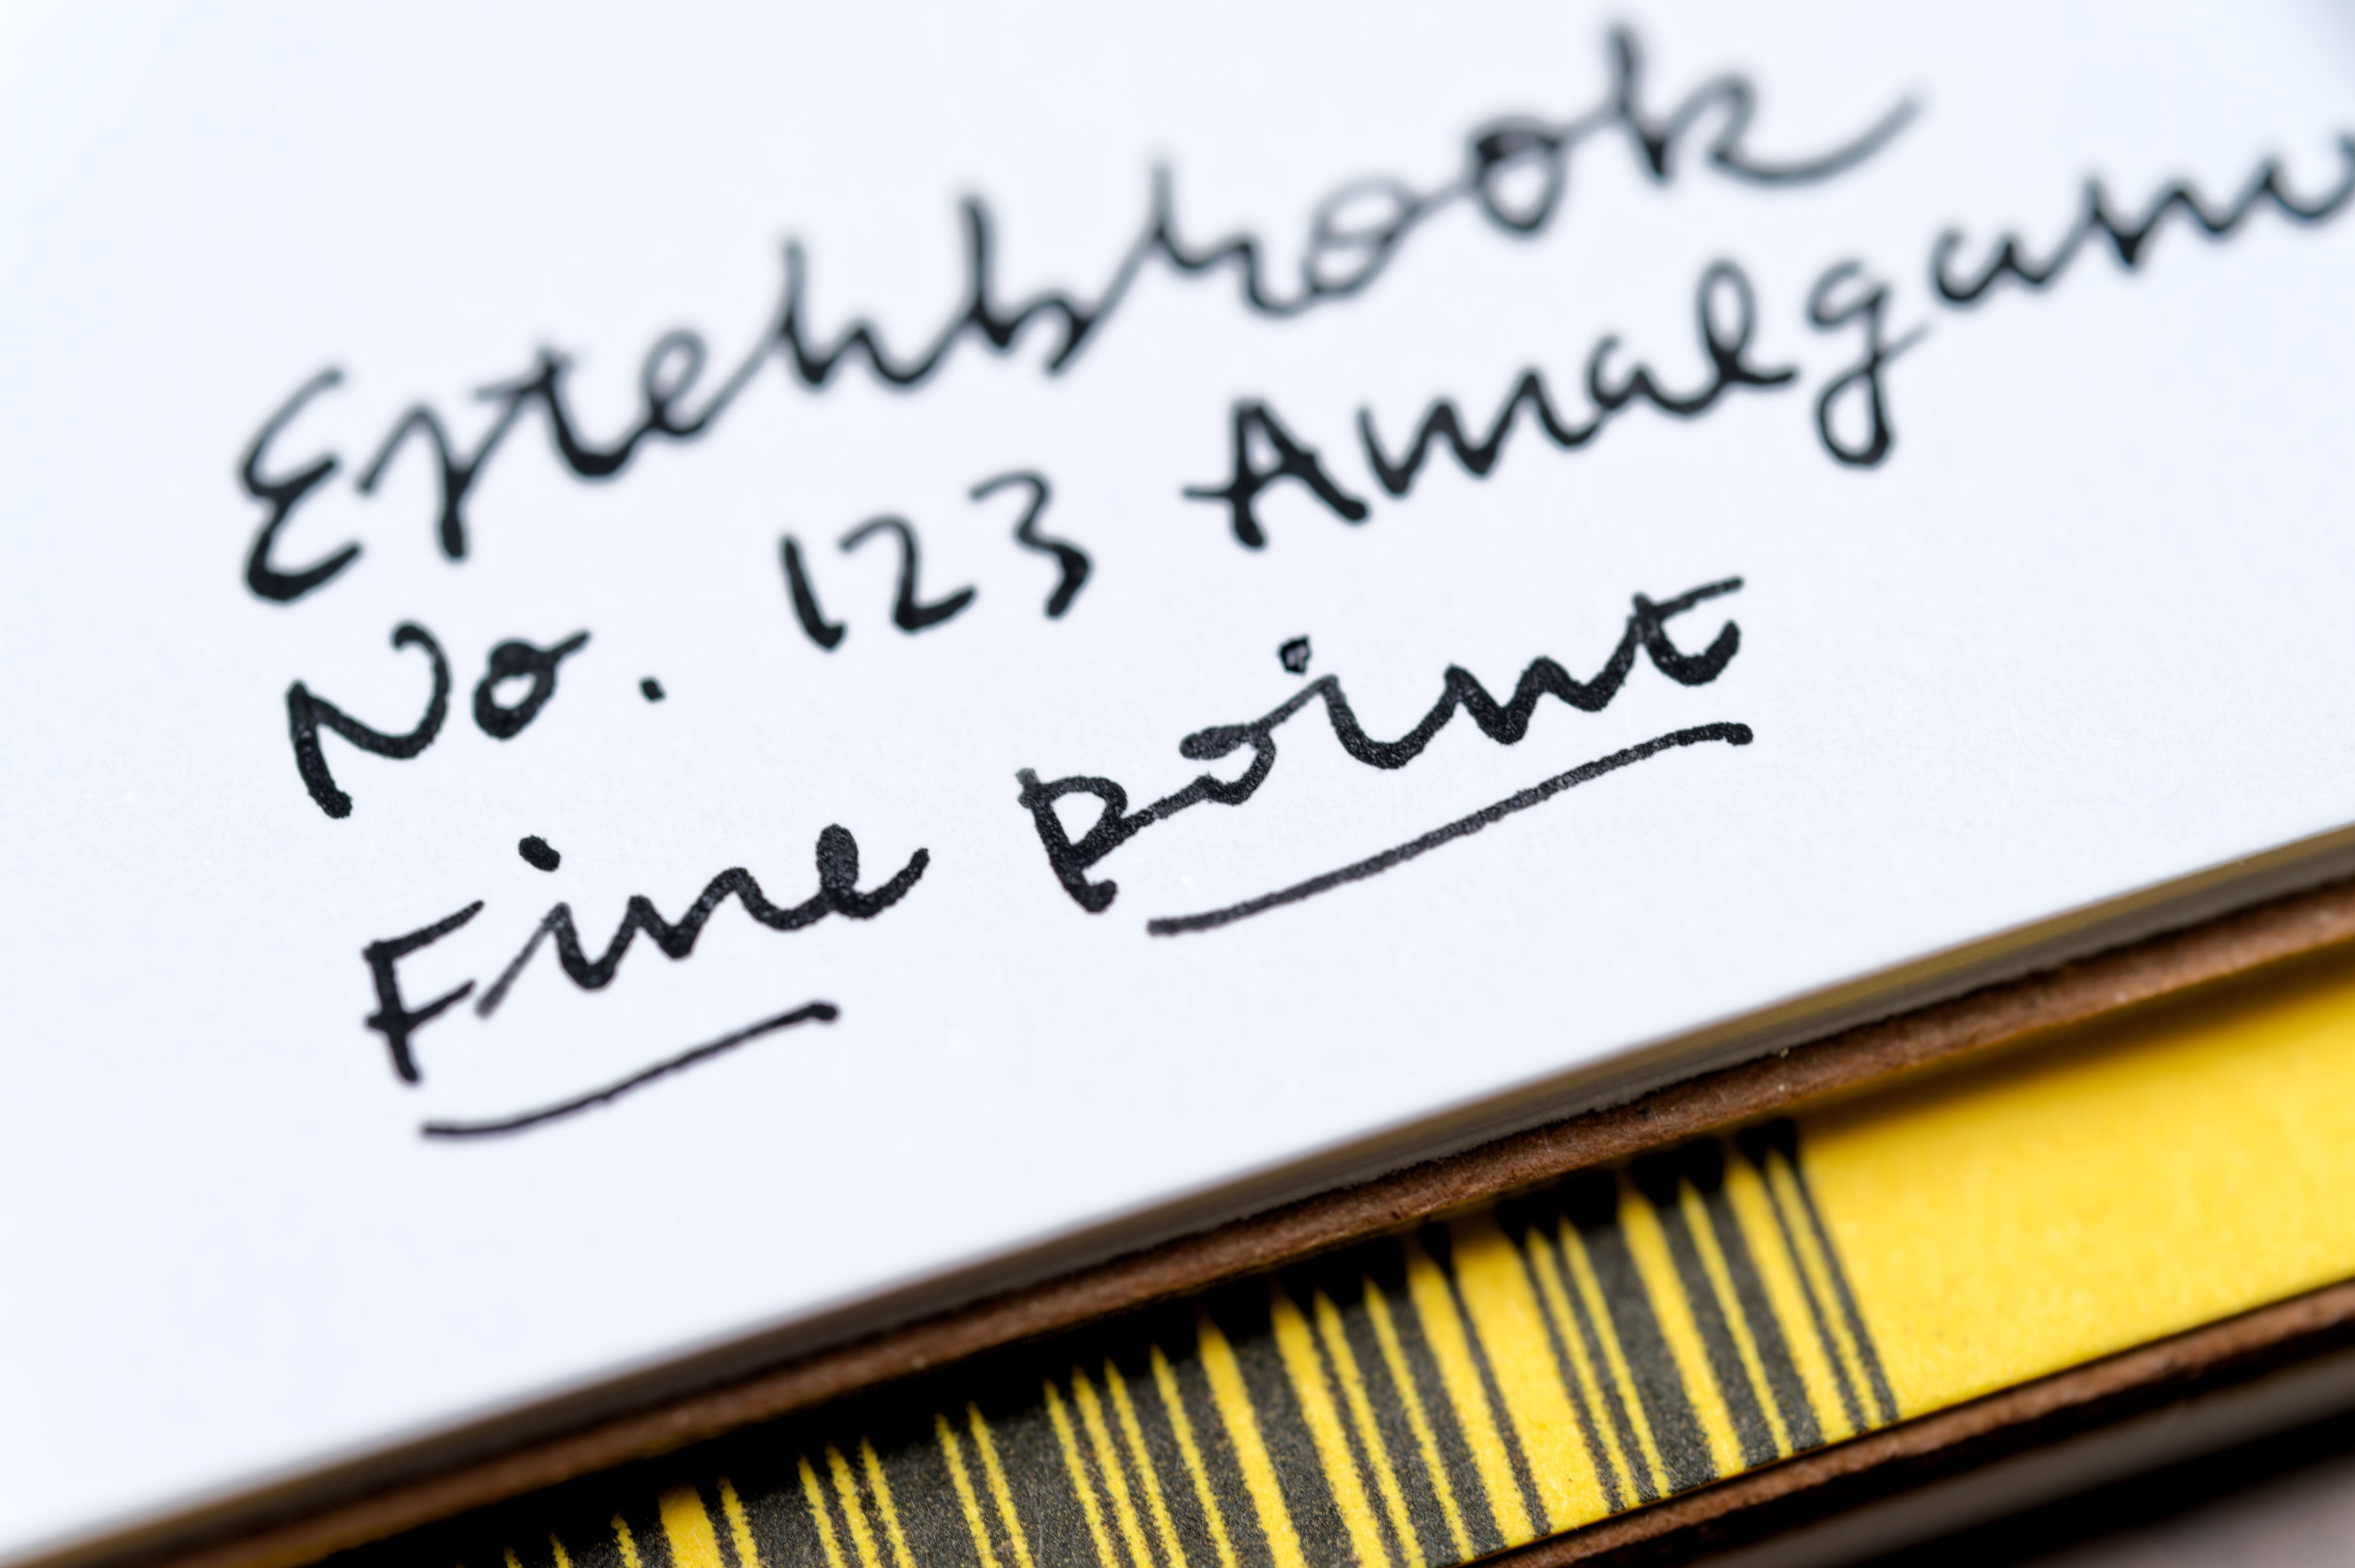 Esterbrook
No. 123 Amalgam
Fine Point